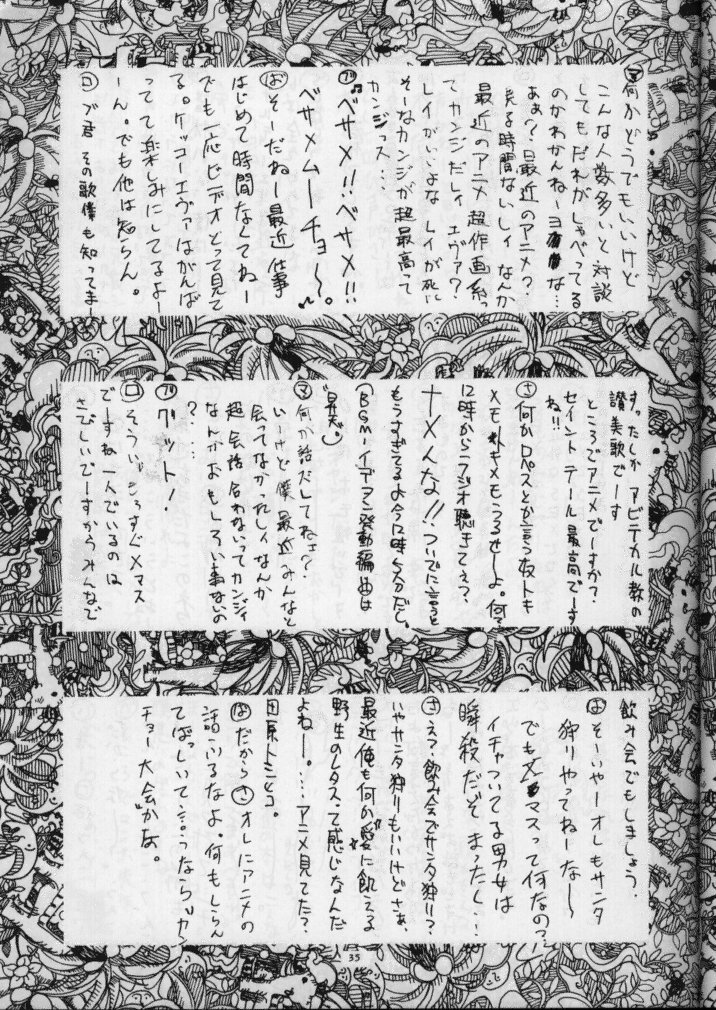 ㋮何かどうでもいいけど
こんな人数多いと対談
してもだれがしゃべってる
のかわかんねーヨ な…
あぁ?最近のアニメ?
見る時間ないしィ なんか
最近のアニメ 超作画系
てカンジだしィ エヴァ?
レイがいいよな レイが死に
そーなカンジが超最高って
カンジっス…
ベサメ!!ベサメ!!
ベサメムーチョ〜。
㋩そーだねー最近仕事
はじめて時間なくてねー
でも一応ビデオとって見て
る。ケッコーエヴァはがんば
ってて楽しみにしてるよー
ーん。でも他は知らん。
㋺ ブ君 その歌僕も知ってまー
すったしか アビテカル教の
讃美歌でーす
ところでアニメでーすか?
セイントテール最高でーす
ね!!
㋚何かロペスとか言う奴トキ
メモトキメモうるせーよ。何?
12時からラジオ聴きてぇ?
ナメんな!!ついでに言うと
もうすぎてるよ今12時5分だし。
(BGM・イデオン発動編曲は
「昇天」)
㋮何か話せしてねェ?
いーけど僕最近みんなと
会ってなかったしィなんか
超会話合わないってカンジィ
なんかおもしろい事ないの
?…
グット!
㋺そういえもうすぐXマス
でーすね一人でいるのは
さびしいでーすからみんなで
飲み会でもしましょう.
そーいやーオレもサンタ
狩りやってねーな〜
でもXマスって何なの?
イチャついてる男女は
瞬殺だぞ まったく…
㋚え?飲み会でサンタ狩り?
いやサンタ狩りもいいけどさぁ、
最近俺も何か愛に飢える
野生のレタスって感じなんだ
よねー。…アニメ見てた?
田原トシヒコ。
だから㋚オレにアニメの
話ふるなよ。何もしらん
てばっしいて…。うなら"ガ
チョー大会"かな。
35